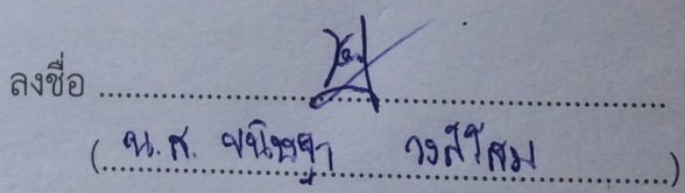 ลงชื่อ ........................................................
( น.ส. ขนิษฐา วงศ์โสม )